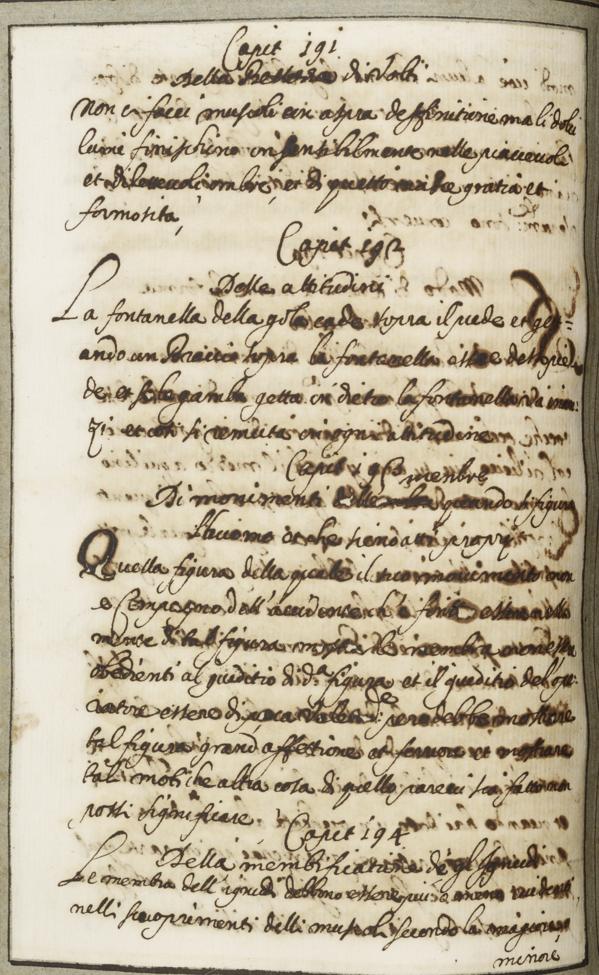 Capit 191
Della Bellezza di Volti
Non ci facci muscoli con aspra deffinitione ma li dolci
lumi finischino insensibilmente nelle piacevoli
et dilettevoli ombre, et di questo gratia et
formosita,
Capit 192
Delle attitudini
La fontanella della gola cade sopra il piede et gett=
ando un Braccio sopra la fontanella esce de sopra pie
de, et se la gamba getta in dietro la fontanella va inan:
zi et cosi si remuta in ogni attitudine
Capit 193
menbre
Di monimenti delle quando si figura
L'huomo che siend atti proprij
Quella figura della quale il suo movimento non
e Compagno dell' accidente ch'e finto essere nella
mente di tal figura mostra le membra non esser
obedienti al giuditio di d.ª figura et il giuditio del ope:
ratore essere di poca Valetu
de
pero debbe mostrare
tal figura grand' affettione et fervore et mostrare
tali moti che altra cosa di quello pareci sia fatto non
possi significare
Capit 194
Della membrificatione de gl' Ignudi
Le membra dell' ignudi debbono essere piu o meno evidenti
nelli scoprimenti delli muscoli secondo la maggiore o
minore